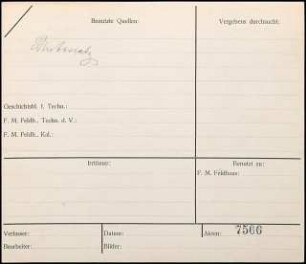 Benutzte Quellen:
Vergebens durchsucht:
Geschichtsbl. f. Techn.:
F. M. Feldh., Techn. d. V.:
F. M. Feldh., Kal.:
Irrtümer:
Benutzt zu:
F. M. Feldhaus:
Verfasser:
Datum:
Akten: 7566
Bearbeiter:
Bilder: